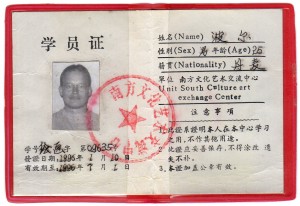 学员证
学号 字 第09635号
发证日期:1996年1月10日
有效期至:1996年7月1日
姓名(Name)
性别(Sex) 男 年龄(Age)
籍贯(Nationality) 丹麦
单位 南方文化艺术交流中心
Unit South Culture art
exchange Center
注意事项
1、此证系证明本人在本中心学习
之用,不作其他用途。
2、此证应妥善保存,不得涂改 遗
失不补。
3、本证加盖公章有效。